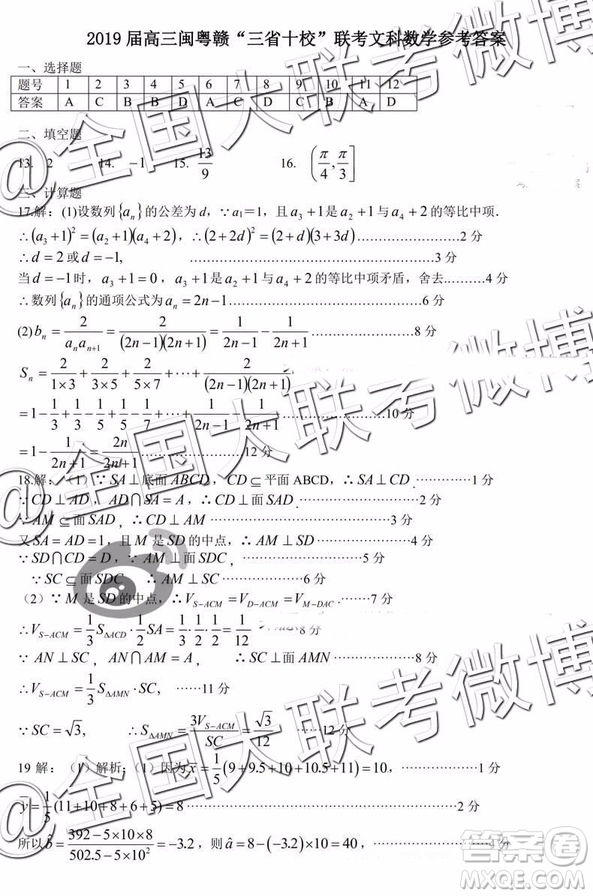 2019届高三闽粤赣“三省十校”联考文科数学参考答案
一、选择题
题号 1 2 3 4 5 6 7 8 9 10 11 12
答案 A C B B D A C D B C A D
二、填空题
13. 2 14. -1 15. 13/9 16. (π/4, π/3]
三、计算题
17.解：(1)设数列{a_n}的公差为d，∵a₁=1，且a₃+1是a₁+1与a₄+2的等比中项.
∴(a₃+1)²=(a₁+1)(a₄+2)，∴(2+2d)²=(2+d)(3+3d)……………………2分
∴d=2或d=-1,……………………3分
当d=-1时，a₃+1=0，a₃+1是a₁+1与a₄+2的等比中项矛盾，舍去……….4分
∴数列{a_n}的通项公式为a_n=2n-1……………………6分
(2) b_n=2/(a_n a_{n+1})=2/((2n-1)(2n+1))=1/(2n-1)-1/(2n+1)……………………8分
S_n=2/(1×3)+2/(3×5)+2/(5×7)+…+2/((2n-1)(2n+1))
=1-1/3+1/3-1/5+1/5-1/7+…+1/(2n-1)-1/(2n+1)
=1-1/(2n+1)=2n/(2n+1)……………………12分
18.解：（1）∵SA⊥底面ABCD，CD⊆平面ABCD，∴SA⊥CD………1分
∵CD⊥AD，AD∩SA=A，∴CD⊥面SAD………2分
∵AM⊆面SAD，∴CD⊥AM……………………3分
又SA=AD=1，且M是SD的中点，∴AM⊥SD……………………4分
∵SD∩CD=D，∴AM⊥面SDC……………………5分
∵SC⊆面SDC，∴SC⊥AM……………………6分
（2）∵M是SD的中点，∴V_{S-ACM}=V_{D-ACM}=V_{M-DAC}.………7分
∴V_{S-ACM}=1/3 S_{ΔACD}·1/2 SA=1/3·1/2·1/2=1/12……8分
∵AN⊥SC，AM⊥SC，∴SC⊥面AMN……………………10分
∴V_{S-ACM}=1/3 S_{ΔAMN}·SC，……11分
∵SC=√3，∴S_{ΔAMN}=3V_{S-ACM}/SC=√3/12……12分
19解：（1）解析：（1）因为x̄=1/5(9+9.5+10+10.5+11)=10，……………1分
ȳ=1/5(11+10+8+6+5)=8……………………2分
所以b̂=(392-5×10×8)/(502.5-5×10²)=-3.2，则â=8-(-3.2)×10=40，……………4分
答案圈
@全国大联考微博
@全国大联考微博
@全国大联考微博